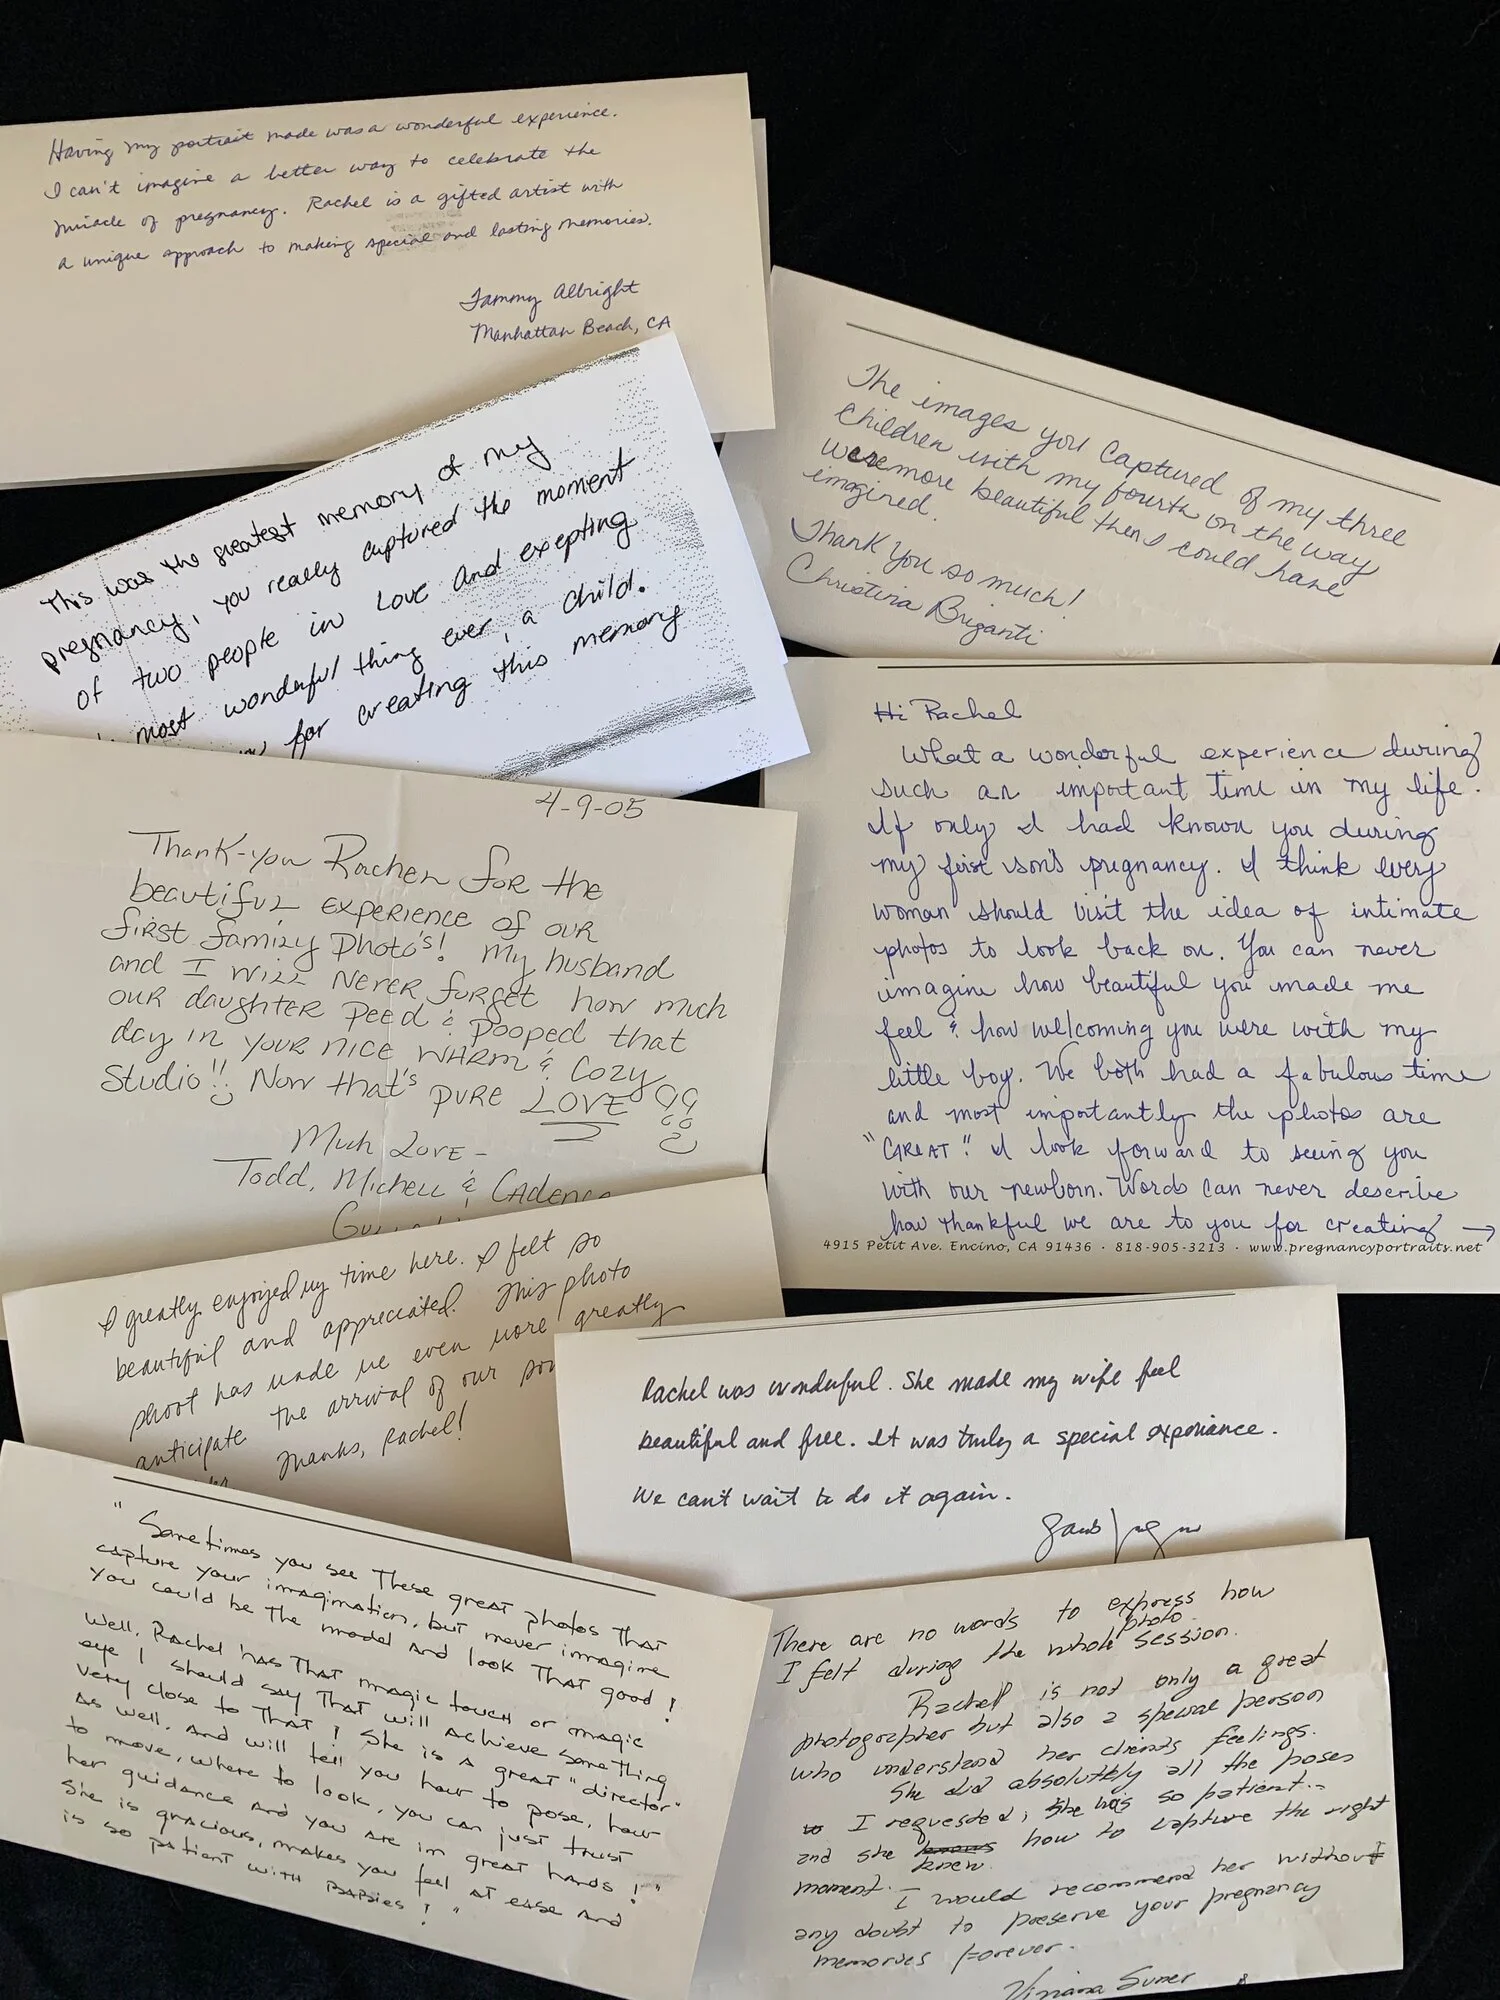 Having my portrait made was a wonderful experience.
I can't imagine a better way to celebrate the
miracle of pregnancy. Rachel is a gifted artist with
a unique approach to making special and lasting memories.
Tammy Albright
Manhattan Beach, CA
The images you captured of my three
children with my fourth on the way
were more beautiful then I could have
imagined.
Thank You so much!
Christina Briganti
This was the greatest memory of my
pregnancy, you really captured the moment
of two people in Love and excepting
most wonderful thing ever, a child.
for creating this memory
Hi Rachel
What a wonderful experience during
such an important time in my life.
If only I had known you during
my first son's pregnancy. I think every
woman should visit the idea of intimate
photos to look back on. You can never
imagine how beautiful you made me
feel & how welcoming you were with my
little boy. We both had a fabulous time
and most importantly the photos are
"GREAT". I look forward to seeing you
with our newborn. Words can never describe
how thankful we are to you for creating →
4915 Petit Ave. Encino, CA 91436 · 818-905-3213 · www.pregnancyportraits.net
4-9-05
Thank-you Rachel for the
beautiful experience of our
first family photo's! My husband
and I will never forget how much
our daughter peed & pooped that
day in your nice warm & cozy
studio!! Now that's pure LOVE!!
Much Love -
Todd, Michell & Cadence
I greatly enjoyed my time here. I felt so
beautiful and appreciated. This photo
shoot has made me even more greatly
anticipate the arrival of our son
Thanks, Rachel!
Rachel was wonderful. She made my wife feel
beautiful and free. It was truly a special experiance.
We can't wait to do it again.
"Sometimes you see these great photos that
capture your imagination, but never imagine
you could be the model and look that good!
Well, Rachel has that magic touch or magic
eye I should say that will achieve something
very close to that! She is a great "director"
as well. And will tell you how to pose, how
to move, where to look, you can just trust
her guidance and you are in great hands!"
She is gracious, makes you feel at ease and
is so patient with babies!"
There are no words to express how
I felt during the whole photo session.
Rachel is not only a great
photographer but also a special person
who understand her clients feelings.
She did absolutely all the poses
to I requested, she was so patient..
and she knows knew how to capture the right
moment. I would recommend her without
any doubt to preserve your pregnancy
memories forever.